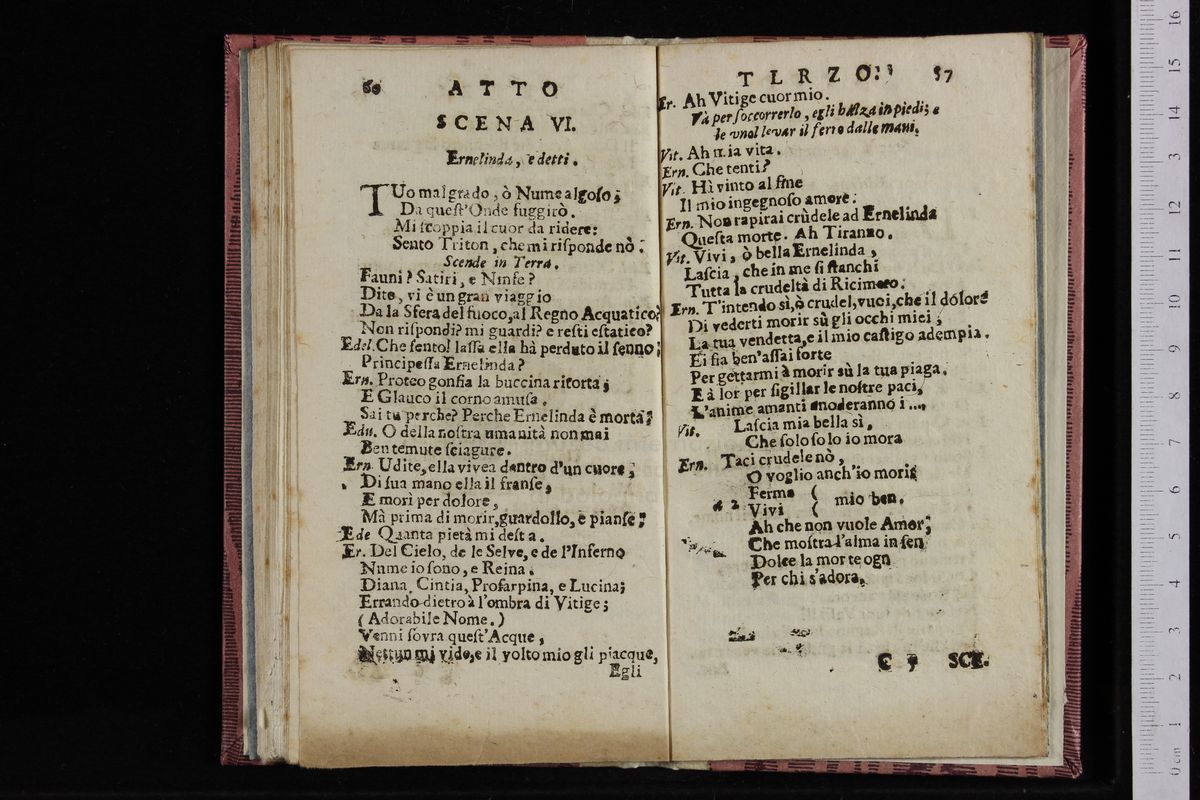 60 ATTO
SCENA VI.
Ernelinda, e detti.
TUo malgrado, ò Nume algoſo;
Da queſt'Onde fuggirò.
Mi ſcoppia il cuor da ridere:
Sento Triton, che mi riſponde nò:
Scende in Terra.
Fauni? Satiri, e Ninfe?
Dite, vi è un gran viaggio
Da la Sfera del fuoco, al Regno Acquatico?
Non riſpondi? mi guardi? e reſti eſtatico?
Edel. Che ſento! laſſa ella hà perduto il ſenno;
Principeſſa Ernelinda?
Ern. Proteo gonfia la buccina ritorta;
E Glauco il corno amuſa.
Sai tu perche? Perche Ernelinda è morta;
Edu. O della noſtra umanità non mai
Ben temute ſciagure.
Ern. Udite, ella vivea dentro d'un cuore;
Di ſua mano ella il franſe,
E morì per dolore,
Mà prima di morir, guardollo, e pianſe;
Ede Quanta pietà mi deſta.
Er. Del Cielo, de le Selve, e de l'Inferno
Nume io ſono, e Reina.
Diana, Cintia, Proſarpina, e Lucina;
Errando dietro à l'ombra di Vitige;
(Adorabile Nome.)
Venni ſovra queſt'Acque,
Nettun mi vide, e il volto mio gli piacque,
Egli
TLRZO. 57
Er. Ah Vitige cuor mio.
Và per ſoccorrerlo, egli balza in piedi; e
le vuol levar il ferro dalle mani.
Vit. Ah mia vita.
Ern. Che tenti?
Vit. Hà vinto al fine
Il mio ingegnoſo amore:
Ern. Non rapirai crùdele ad Ernelinda
Queſta morte. Ah Tiranno.
Vit. Vivi, ò bella Ernelinda,
Laſcia, che in me ſi ſtanchi
Tutta la crudeltà di Ricimero.
Ern. T'intendo sì, ò crudel, vuoi, che il dolore
Di vederti morir sù gli occhi miei,
La tua vendetta, e il mio caſtigo adempia.
Ei ſia ben'aſſai forte
Per gettarmi à morir sù la tua piaga.
E à lor per ſigillar le noſtre paci,
L'anime amanti anoderanno i ....
Vit. Laſcia mia bella sì,
Che ſolo ſolo io mora
Ern. Taci crudele nò,
O voglio anch'io morir
Ferma (
a 2 mio ben.
Vivi (
Ah che non vuole Amor;
Che moſtra l'alma in ſen
Dolce la morte ogn
Per chi s'adora.
C 5 SCE.